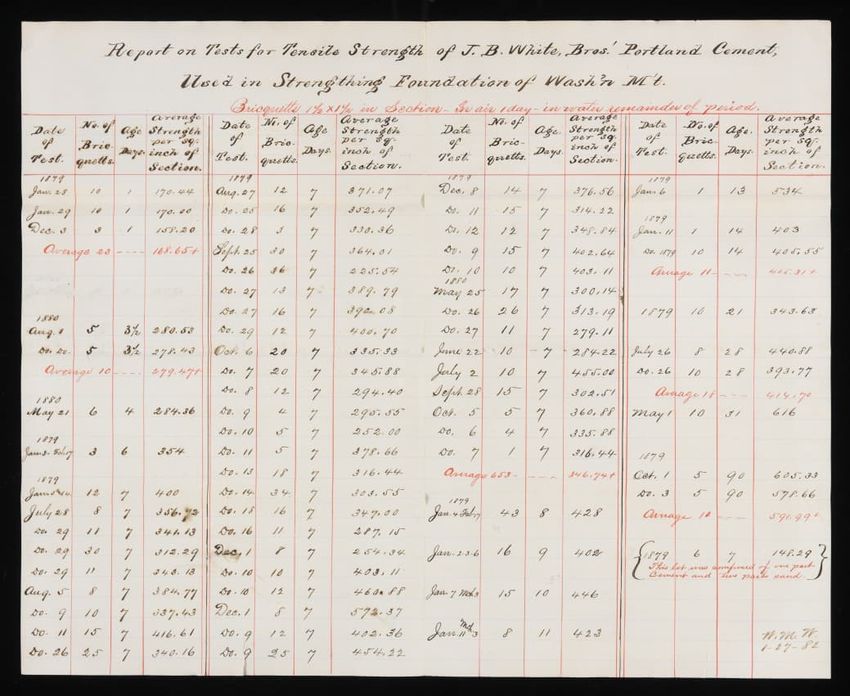 Report on Tests for Tensile Strength of J. B. White, Bros.' Portland Cement,
Used in Strengthing Foundation of Wash'n M't.
Bricquetts 1½ x 1½ in Section - In air 1 day - in water remainder of period.
Date of Test. No. of Bricquetts. Age Days. Average Strength per sq. inch of Section.
1879
Jan. 28 10 1 170.44
Jan. 29 10 1 170.00
Dec. 3 3 1 158.20
Average 23 ---- 168.65+
1880
Aug. 1 5 3½ 280.53
Do. Do. 5 3½ 278.43
Average 10 ---- 279.47+
1880
May 21 6 4 284.36
1879
3 6 354
1879
12 7 400
July 28 8 7 356.72
Do. 29 11 7 341.13
Do. 29 30 7 312.29
Do. 29 11 7 343.13
Aug. 5 8 7 384.77
Do. 9 10 7 337.43
Do. 11 15 7 416.61
Do. 26 25 7 340.16
Date of Test. No. of Bricquetts. Age Days. Average Strength per sq. inch of Section.
1879
Aug. 27 12 7 371.07
Do. 25 16 7 352.49
Do. 28 3 7 330.36
Sept. 25 30 7 364.01
Do. 26 36 7 225.54
Do. 27 13 7 389.79
Do. 27 16 7 392.08
Do. 29 12 7 400.70
Oct. 6 20 7 335.33
Do. 7 20 7 345.88
Do. 8 12 7 294.40
Do. 9 4 7 295.55
Do. 10 5 7 252.00
Do. 11 5 7 378.66
Do. 13 18 7 316.44
Do. 14 34 7 303.55
Do. 15 16 7 347.00
Do. 16 11 7 287.15
Dec. 1 8 7 254.34
Do. 10 10 7 403.11
Do. 10 12 7 460.88
Dec. 1 8 7 572.37
Do. 9 12 7 402.36
Do. 9 25 7 454.22
Date of Test. No. of Bricquetts. Age Days. Average Strength per sq. inch of Section.
1879
Dec. 8 14 7 376.56
Do. 11 15 7 314.22
Do. 12 12 7 348.84
Do. 9 15 7 402.64
Do. 10 10 7 403.11
1880
May 25 17 7 300.14
Do. 26 26 7 313.19
Do. 27 11 7 279.11
June 22 10 7 284.22
July 2 10 7 455.00
Sept. 28 15 7 302.51
Oct. 5 5 7 360.88
Do. 6 4 7 335.88
Do. 7 1 7 316.44
Average 653 ---- 346.74+
1879
43 8 428
16 9 402
15 10 446
8 11 423
Date of Test. No. of Bricquetts. Age. Days. Average Strength per sq. inch of Section.
1879
Jan. 6 1 13 534
1879
Jan. 11 1 14 403
Do. 1879 10 14 405.55
Average 11 ---- 405.31+
1879 10 21 343.63
July 26 8 28 440.88
Do. 26 10 28 393.77
Average 18 ---- 414.70
May 1 10 31 616
1879
Oct. 1 5 90 605.33
Do. 3 5 90 578.66
Average 10 ---- 591.99+
1879 6 7 148.29
This lot was composed of one part
Cement and two parts sand.
W. M. W.
1-27-82